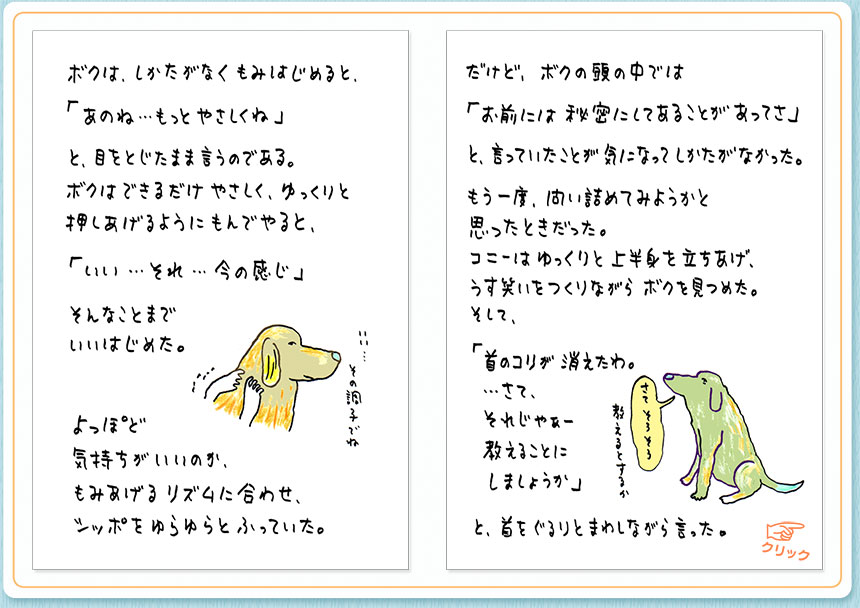 ボクは、しかたがなくもみはじめると、
「あのね…もっとやさしくね」
と、目をとじたまま言うのである。
ボクはできるだけやさしく、ゆっくりと
押しあげるようにもんでやると、
「いい…それ…今の感じ」
そんなことまで
いいはじめた。
いい…
その調子でね
よっぽど
気持ちがいいのか、
もみあげるリズムに合わせ、
シッポをゆらゆらとふっていた。
だけど、ボクの頭の中では
「お前には秘密にしてあることがあってさ」
と、言っていたことが気になってしかたがなかった。
もう一度、問い詰めてみようかと
思ったときだった。
コニーはゆっくりと上半身を立ちあげ、
うす笑いをつくりながらボクを見つめた。
そして、
「首のコリが消えたわ。
…さて、
それじゃぁー
教えることに
しましょうか」
さてそろそろ
教えるとするか
と、首をぐるりとまわしながら言った。
クリック